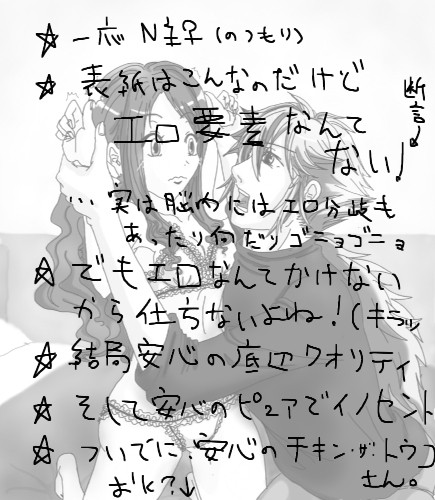 ☆ 一応 N主子(のつもり)
☆ 表紙はこんなのだけど
エロ要素なんて
ない!
断言!
…実は脳内にはエロ分岐も
あったり何だりゴニョゴニョ
☆ でもエロなんてかけない
から仕ちないよね!(キラッ
☆ 結局安心の底辺クオリティ
☆ そして安心のピュアでイノセント
☆ ついでに安心のチキン・ザ・トウコ
さん。
おk?↓